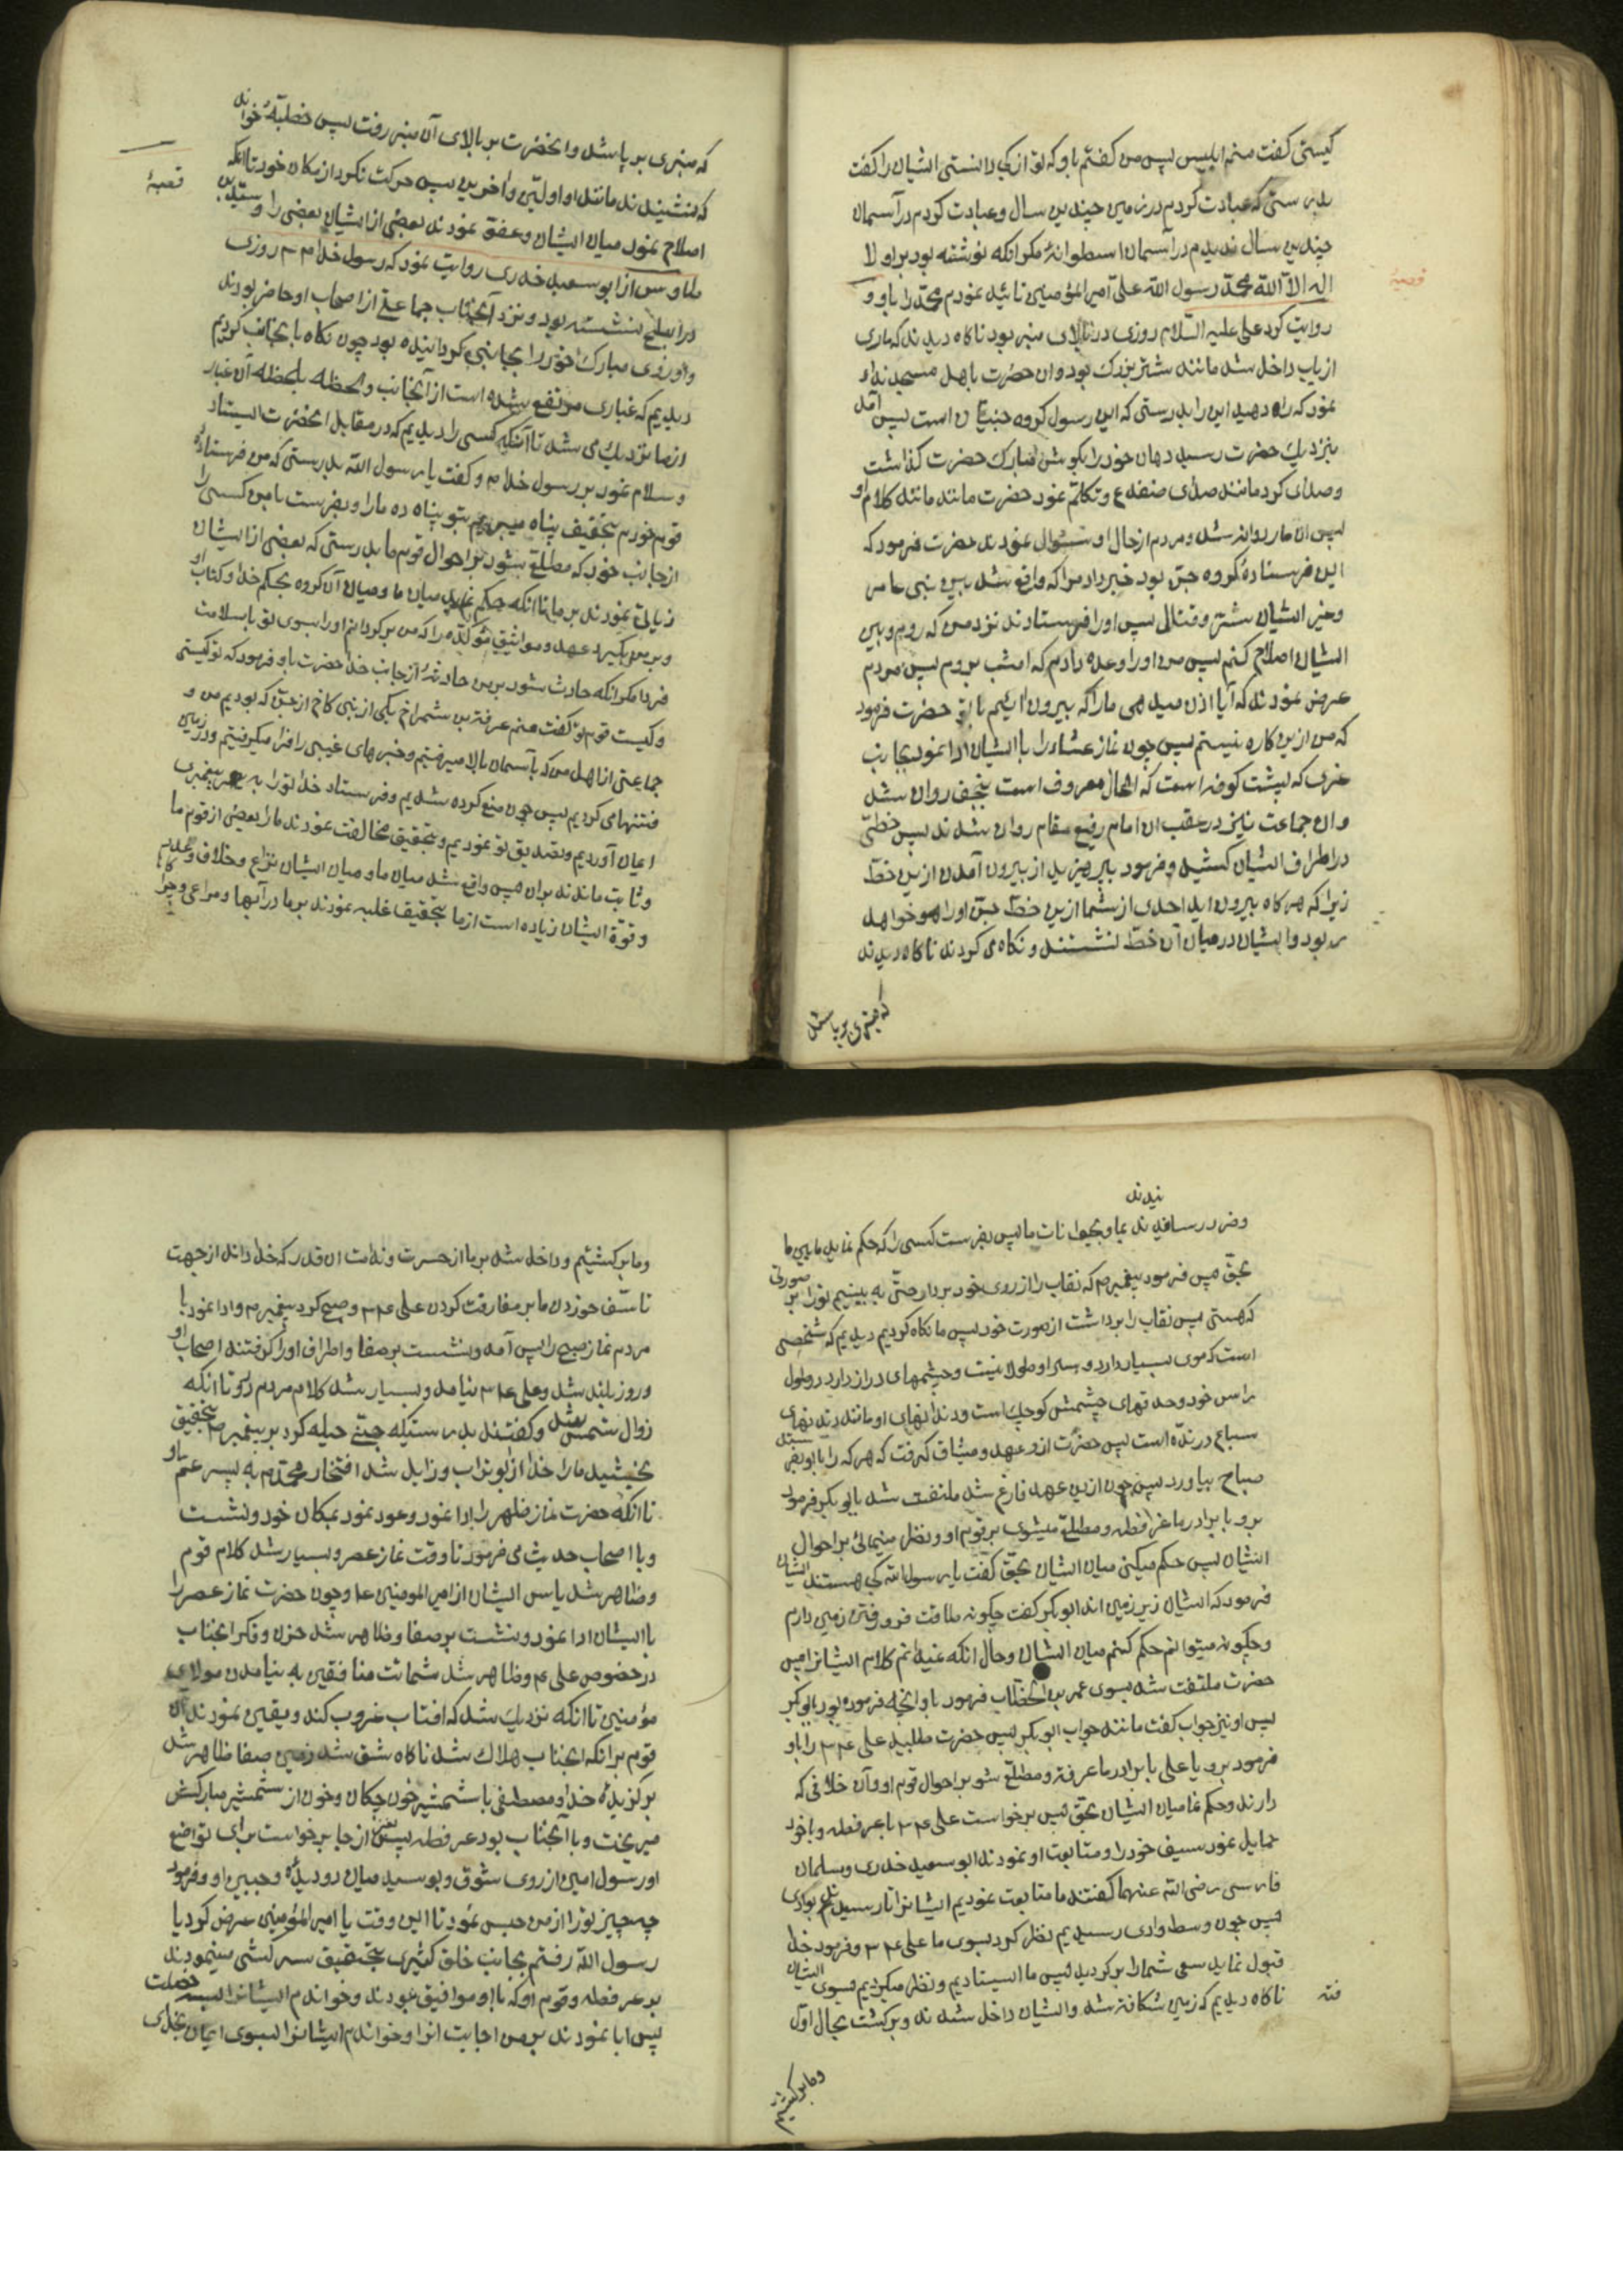 کیستی کفت منم ابلیس پس من کفتم باو که تو از کجا دانستی ایشان را کفت
بدرستی که عبادت کردم در زمین چندین سال و عبادت کردم در آسمان
چندین سال ندیدم در آسمان اسطوانهٔ مکر انکه نوشته بود بر او لا
اله الا الله محمد رسول الله علی امیر المؤمنین تائید نمودم محمد را باو و
قصهٔ
روایت کرد علی علیه السلام روزی در بالای منبر بود ناکاه دیدند که ماری
از باب داخل شد مانند شتر بزرک بود و ان حضرت باهل مسجد نداء
نمود که راه دهید این را بدرستی که این رسول کروه جنیان است پس آمد
بنزدیک حضرت رسید دهان خود را بکوش مبارک حضرت کذاشت
و صدای کرد مانند صدای ضفدع و تکلم نمود حضرت مانند مانند کلام او
پس ان مار روانه شد و مردم از حال او سئوال نمودند حضرت فرمود که
این فرستادهٔ کروه جن بود خبر داد مرا که واقع شد بین بنی عامر
و غیر ایشان ستیز و قتالی پس او را فرستادند نزد من که روم و بین
ایشان اصلاح کنم پس من او را وعده دادم که امشب بروم پس مردم
عرض نمودند که آیا اذن میدهی ما را که بیرون ائیم با تو حضرت فرمود
که من ازین کاره نیستم پس چون نماز عشاء را با ایشان ادا نمود بجانب
غری که پشت کوفه است که الحال معروف است بنجف روان شد
و ان جماعت نایز در عقب ان امام رفیع مقام روان شدند پس خطی
در اطراف ایشان کشید و فرمود بپرهیزید از بیرون آمدن ازین خط
زیرا که هر کاه بیرون اید احدی از شما ازین خط جن او را هم خواهد
ربود و ایشان در میان آن خط نشستند و نکاه می کردند ناکاه دیدند
که منبری بر پا شد
که منبری بر پا شد و انحضرت بر بالای آن منبر رفت پس خطبهٔ خواند
که نشنیدند مانند او اولین و اخرین پس حرکت نکرد از مکان خود تا انکه
اصلاح نمود میان ایشان و عفو نمودند بعضی از ایشان بعضی را و
قصهٔ
از ابو سعید خدری روایت نمود که رسول خدا م روزی
در ابطح نشسته بود و نزد آنجناب جماعتی از اصحاب او حاضر بودند
و او روی مبارک خود را بجانبی کردانیده بود چون نکاه بانجانب کردیم
دیدیم که غباری مرتفع شده است از آنجانب و لحظه بلحظه آن غبار
از ما نزدیک می شد تا آنکه کسی را دیدیم که در مقابل انحضرت ایستاد
و سلام نمود بر رسول خدا م و کفت یا رسول الله بدرستی که من فرستادهٔ
قوم خودم بتحقیق پناه میبریم بتو پناه ده ما را و بفرست با من کسی را
از جانب خود که مطلع شود بر احوال قوم ما بدرستی که بعضی از ایشان
زیادتی نمودند بر ما تا انکه حکم نماید میان ما و میان آن کروه بحکم خدا و کتاب او
و بر من بگیرد عهد و مواثیق مؤکده را که من بر کردانم او را بسوی تو با سلامت
فردا مکر انکه حادث شود بر من حادثهٔ از جانب خدا حضرت باو فرمود که تو کیستی
و کیست قوم تو کفت منم عرفطه بن شمراخ یکی از بنی کاخ از جن که بودیم من و
جماعتی از اهل من که بآسمان بالا میرفتیم و خبرهای غیبی را فرا میکرفتیم و در زمین
فتنها می کردیم پس چون منع کرده شدیم و فرستاد خدا تو را به پیغمبری
ایمان آوردیم و تصدیق تو نمودیم و بتحقیق مخالفت نمودند ما را بعضی از قوم ما
و ثابت ماندند بران پس واقع شد میان ما و میان ایشان نزاع و خلاف و
و قوة ایشان زیاده است از ما بتحقیق غلبه نمودند بر ما در آبها و مراعی و چرا
و ضرر رسانیدند بما و بحیوانات ما پس بفرست کسی را که حکم نماید مابین ما
بحق پس فرمود پیغمبر م که نقاب را از روی خود بردار حتی به بینیم تو را بر صورتی
که هستی پس نقاب را برداشت از صورت خود پس ما نکاه کردیم دیدیم که شخصی
است که موی بسیار دارد و سر او طولانیست و چشمهای دراز دارد در طول
راس خود و حدقهای چشمش کوچک است و دندانهای او مانند دندانهای
سباع درنده است پس حضرت ازو عهد و میثاق کرفت که هر که را با او بفرستد
صباح بیاورد پس چون ازین عهد فارغ شد ملتفت شد بابو بکر فرمود
برو با برادر ما عرفطه و مطلع میشوی بر قوم او و نظر مینمائی بر احوال
ایشان پس حکم میکنی میان ایشان بحق کفت یا رسول الله کی هستند ایشان
فرمود که ایشان زیر زمین اند ابو بکر کفت چکونه طاقت فرو رفتن زمین دارم
و چکونه میتوانم حکم کنم میان ایشان و حال انکه نمیدانم کلام ایشانرا پس
حضرت ملتفت شد بسوی عمر بن الخطاب فرمود باو انچه فرموده بود بابو بکر
پس او نیز جواب کفت مانند جواب ابو بکر پس حضرت طلبید علی ع م را باو
فرمود برو یا علی با برادر ما عرفطه و مطلع شو بر احوال قوم او و آن خلافی که
دارند و حکم نما میان ایشان بحق پس برخواست علی ع م با عرفطه و با خود
حمایل نمود سیف خود را و متابعت او نمودند ابو سعید خدری و سلمان
فارسی رضی الله عنهما کفتند ما متابعت نمودیم ایشانرا تا رسیدند بوادی
پس چون وسط وادی رسیدیم نظر کرد بسوی ما علی ع م و فرمود خدا
قبول نماید سعی شما را بر کردید پس ما ایستادیم و نظر میکردیم بسوی ایشان
ناکاه دیدیم که زمین شکافته شد و ایشان داخل شدند و بر کشت بحال اول
و ما بر کشتیم
و ما بر کشتیم و داخل شد بر ما از حسرت و ندامت ان قدر که خدا داند از جهت
تاسف خوردن ما بر مفارقت کردن علی ع م و صبح کرد پیغمبر م و ادا نمود با
مردم نماز صبح را پس آمد و نشست بر صفا و اطراف او را کرفتند اصحاب او
و روز بلند شد و علی ع م نیامد و بسیار شد کلام مردم تا انکه
زوال شمس شد و کفتند بدرستیکه جنی حیله کرد بر پیغمبر م بتحقیق
بخشید ما را خدا از ابو تراب و زایل شد افتخار محمد م به پسر عم او
تا انکه حضرت نماز ظهر را ادا نمود و عود نمود بمکان خود و نشست
و با اصحاب حدیث می فرمود تا وقت نماز عصر و بسیار شد کلام قوم
و ظاهر شد یاس ایشان از امیر المومنین ع و چون حضرت نماز عصر را
با ایشان ادا نمود و نشست بر صفا و ظاهر شد حزن و فکر انجناب
در خصوص علی م و ظاهر شد شماتت منافقین به نیامدن مولای
مؤمنین تا انکه نزدیک شد که افتاب غروب کند و یقین نمودند ان
قوم بر انکه انجناب هلاک شد ناکاه شق شد زمین صفا ظاهر شد
برکزیدهٔ خدا و مصطفی با شمشیر خون چکان و خون از شمشیر مبارکش
میریخت و با آنجناب بود عرفطه پس از جا برخواست برای تواضع
او رسول امین از روی شوق و بوسید میان دو دیدهٔ و جبین او و فرمود
چه چیز تو را از من حبس نمود تا این وقت یا امیر المؤمنین عرض کرد یا
رسول الله رفتم بجانب خلق کثیری بتحقیق سرکشی مینمودند
بر عرفطه و قوم او که با او موافق بودند و خواندم ایشانرا بسه خصلت
پس ابا نمودند بر من اجابت انرا و خواندم ایشانرا بسوی ایمان بخدای